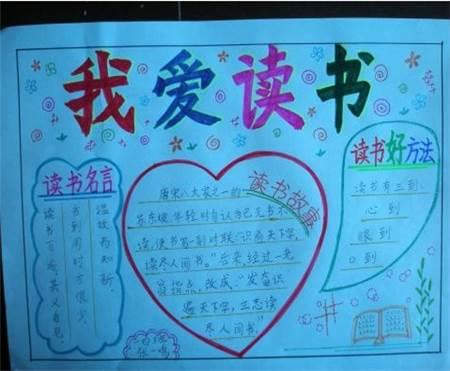 我爱读书
读书名言
温故而知新。
书到用时方恨少
读书百遍,其义自见。
读书故事
唐宋八大家之一的
苏东坡年轻时自认为已无书不
读,便书写一副对联"识遍天下字,
读尽人间书。"后来经过一老
翁指点,改成:"发奋识
遍天下字,立志读
尽人间书。"
读书好方法
读书有三到:
心到
眼到
口到
张一鸣